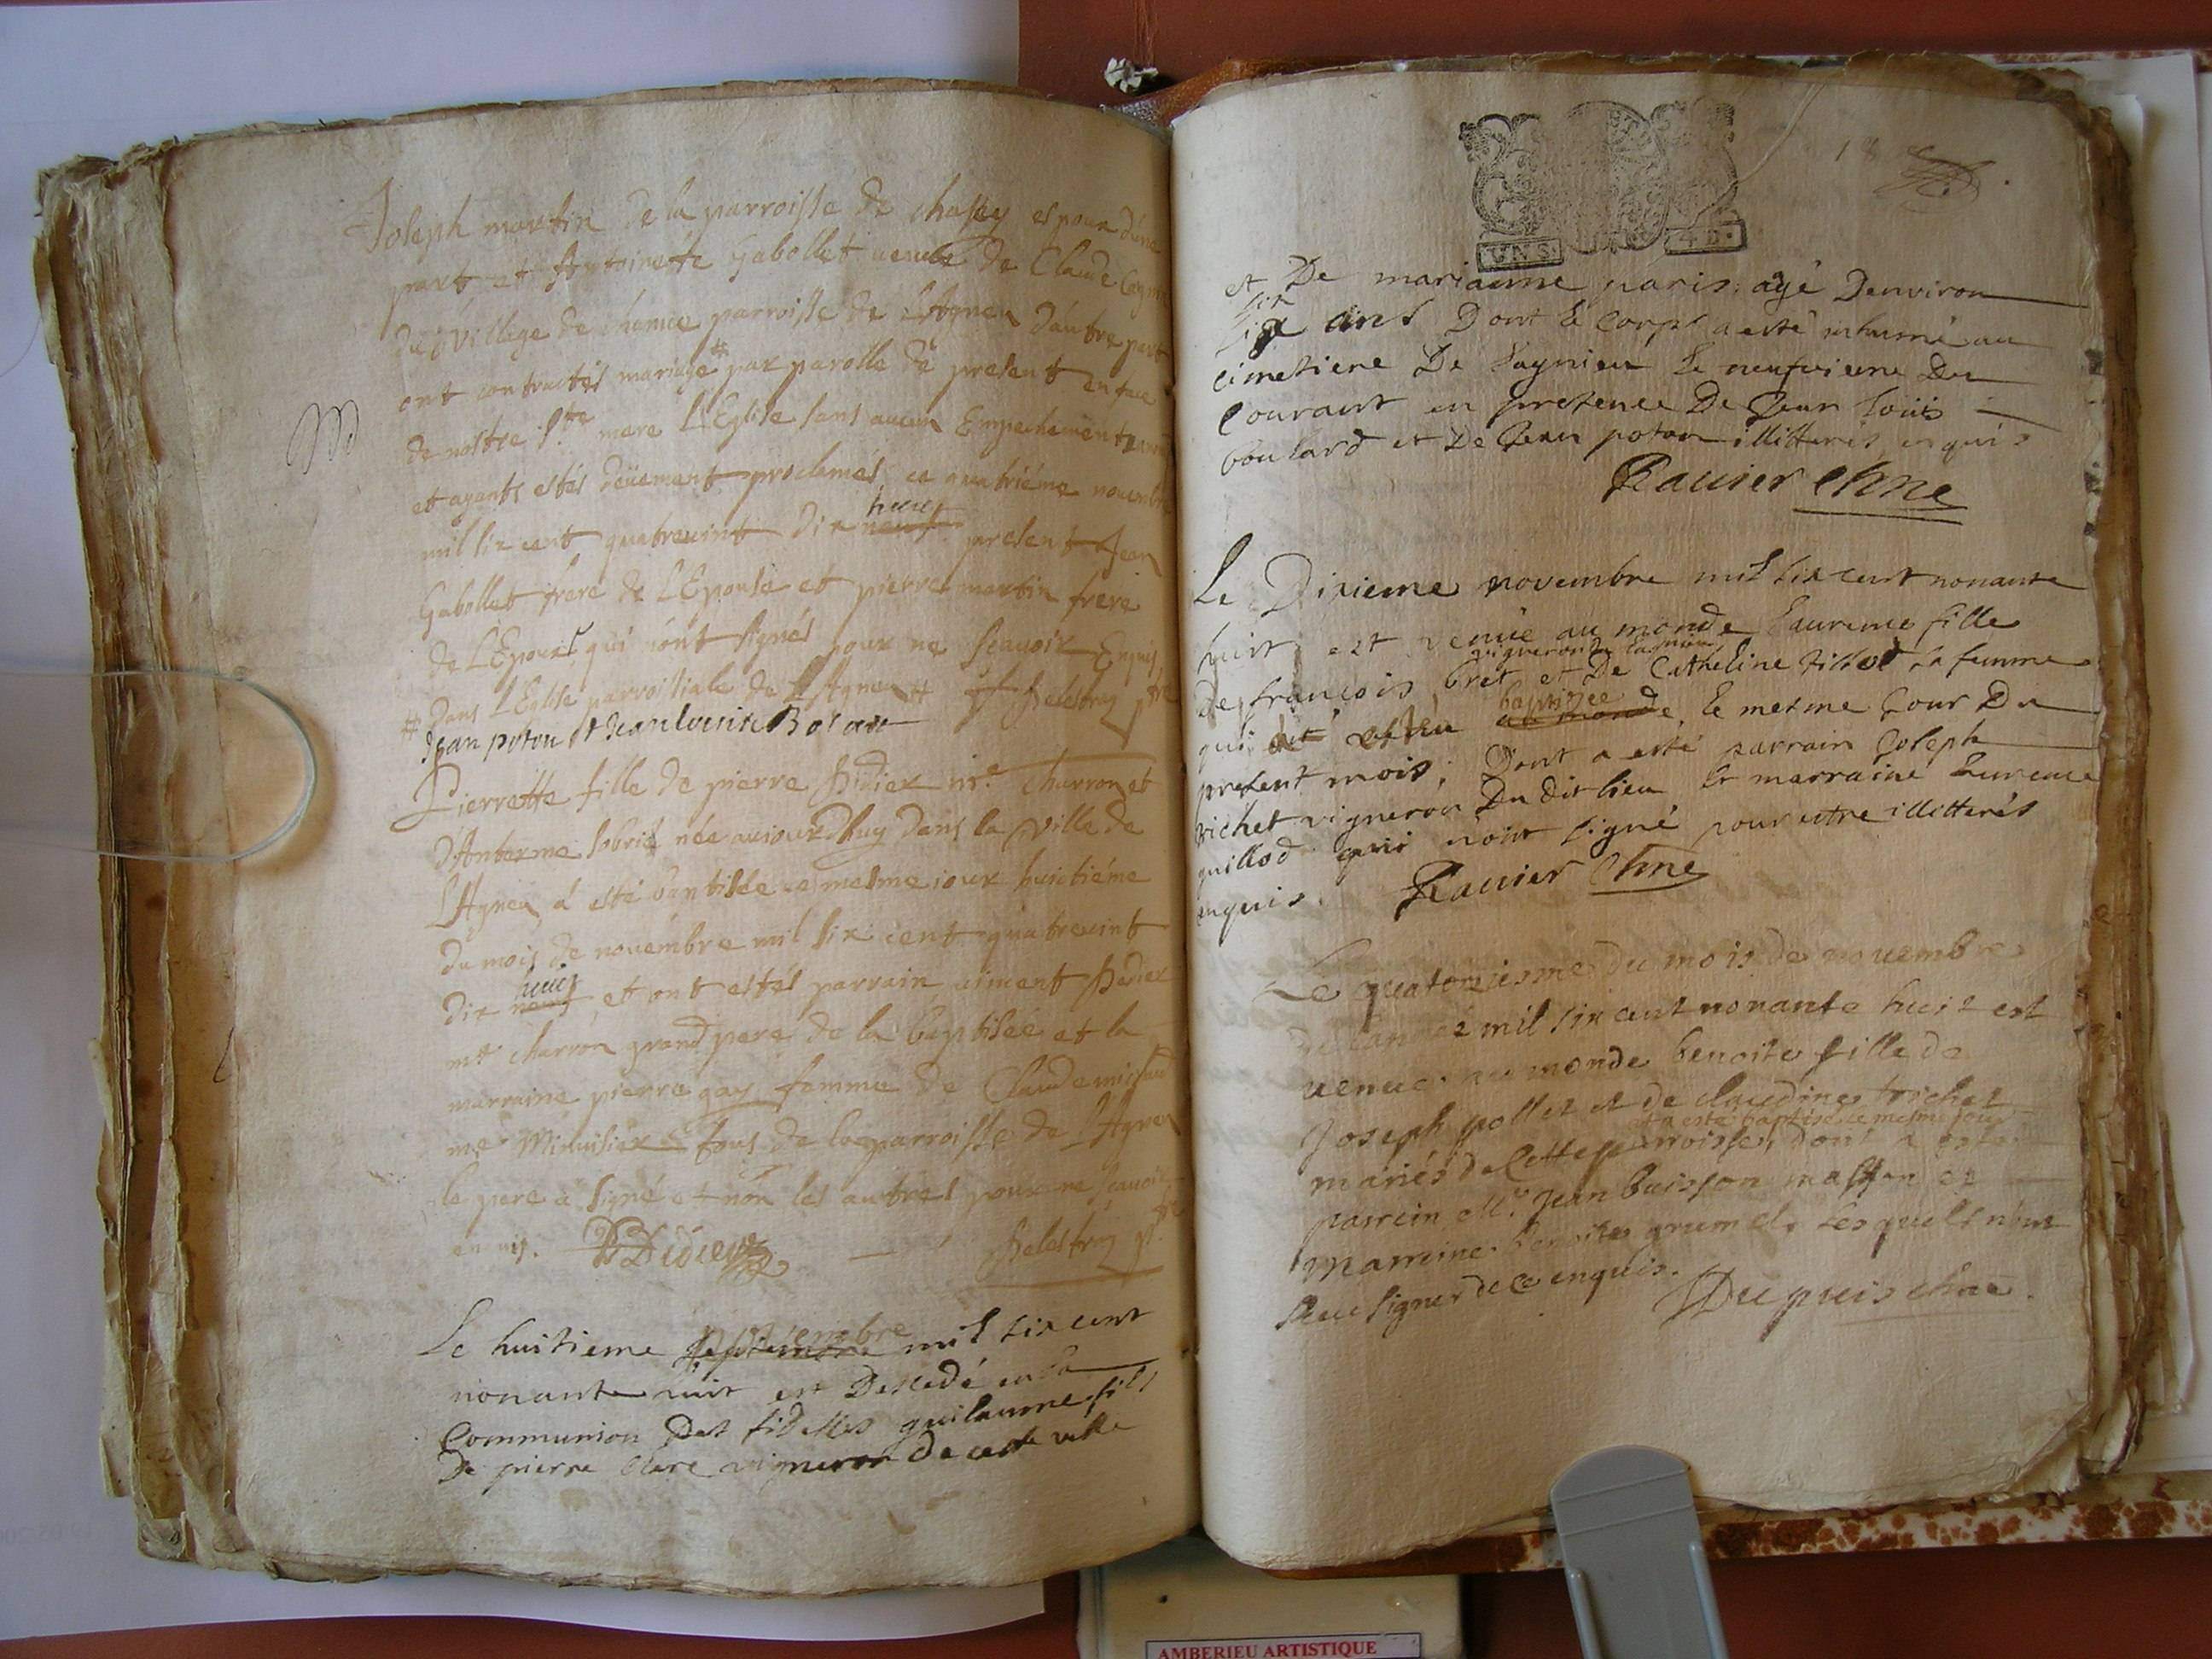 Joseph martin de la parroisse de chasey espoux d'une
part et Antoinette Gabollet veuve de Claude
du village de chamoe parroisse de L'Agneu d'autre part
ont contractés mariage # par parolle de present en face
M
de nostre Ste mere L'Eglise sans aucun Empechement
et ayants estés deüement proclamés ce quatriéme novembre
mil six cent quatrevint dix neuf huict present Jean
Gabollet frere de L'Epouse et pierre martin frere
de L'Epoux qui n'ont signés pour ne scavoir Enquis
# dans L'Eglise parroissiale de L'Agneu #
Jean poton & Jean
Pierrette fille de pierre Didier me charron et
d'Antexme née aujourdhuy dans la ville de
L'Agneu a esté baptisée ce mesme jour huictiéme
du mois de novembre mil six cent quatrevint
dix neuf huict, et ont estés parrain aiment Didier
me charron grand pere de la baptisée et la
marraine pierre gay femme de Claude
me Minusier tous de la parroisse de L'Agneu
le pere a signé et non les autres pour ne scavoir
enquis. PDidier
Le huitieme septembre novembre mil six cent
nonante huit est Decedé en la
Communion des fidelles guilaume fils
De pierre Clere vigneron de cette ville
18
UN S. 4 D.
et De marianne paris agé Denviron
six ans Dont le Corps a esté inhumé au
cimetiere De Lagnieu Le neufvieme Du
Courant en presence De Jean Loüis
boulard et De Jean poton illitterés enquis
Ravier
Le Dixieme novembre mil six cent nonante
huit est venüe au monde Laurence fille
vigneron de Lagnieu
de françois bret et De Catheline la femme
qui baptizee au monde, le mesme jour Du
present mois; Dont a esté parrain Joseph
richet vigneron Du dit lieu Et marraine Laurence
guillod qui n'ont signé pour estre illitterés
enquis. Ravier
Le quatorziesme du mois de novembre
de l'année mil six cent nonante huit est
venue au monde benoite fille de
Joseph pollet et de claudine trichet
et a esté baptisé le mesme jour
mariés de Cette parroisse, dont a esté
parrein Mre Jean buisson masson et
marreine benoite grumel lesquelt n'ont
sceu signer de ce enquis.
Dupuis
AMBERIEU ARTISTIQUE